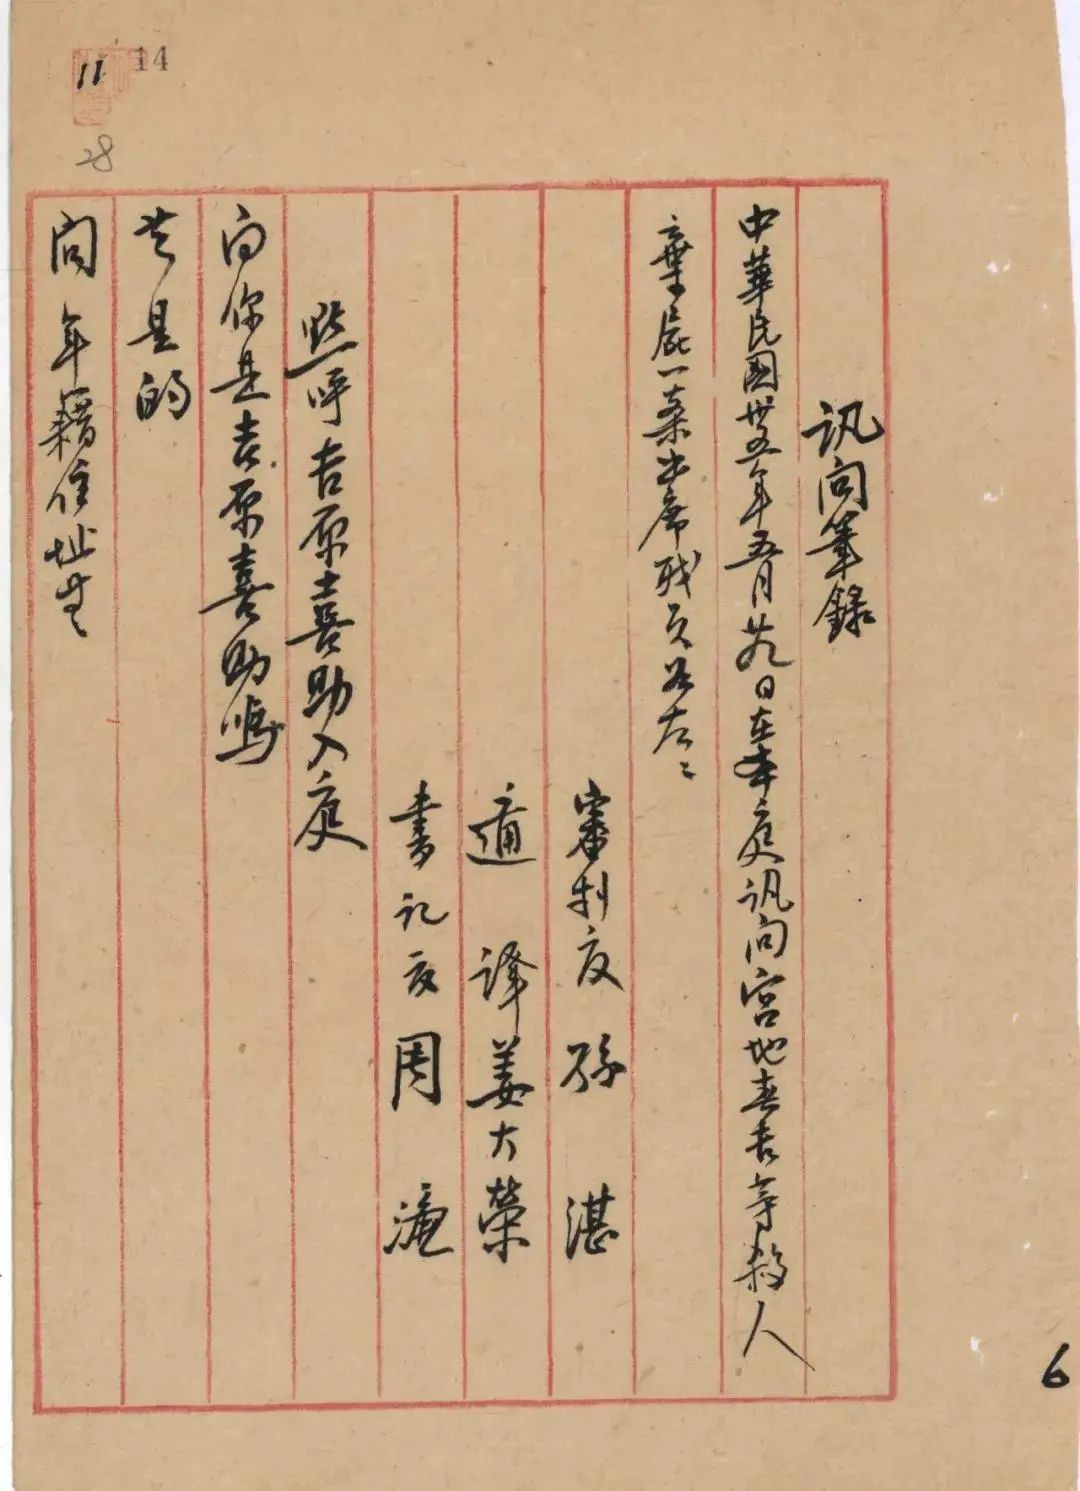 14
11
28
訊問筆錄
中華民國卅五年五月廿九日在本庭訊問宮地春吉等殺人
棄屍一案出席職員如左：
審判官 孫 湛
通 譯 姜大榮
書記官 周 濂
點呼吉原喜助入庭
問你是吉原喜助嗎
答是的
問 年籍住址等
6